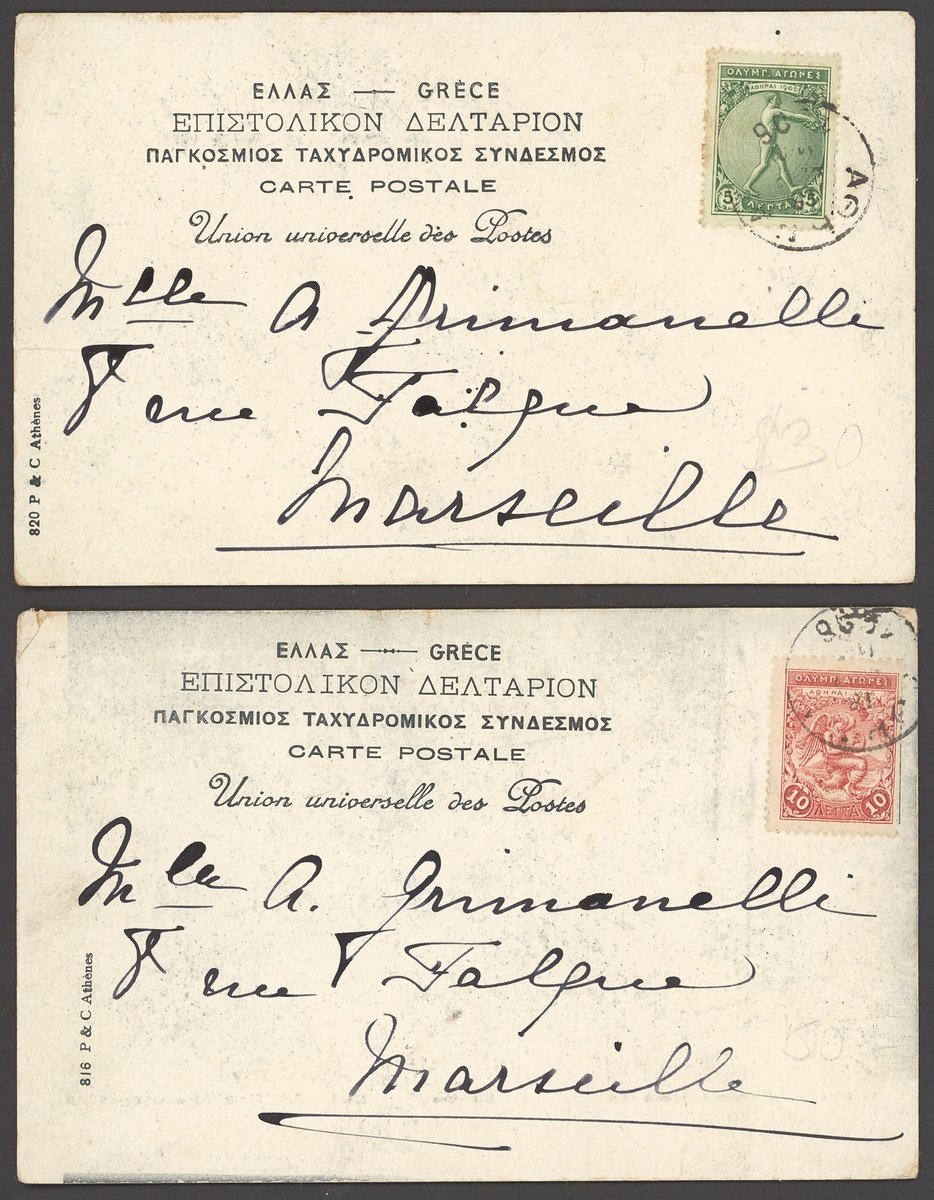 ΕΛΛΑΣ — GRÈCE
ΕΠΙΣΤΟΛΙΚΟΝ ΔΕΛΤΑΡΙΟΝ
ΠΑΓΚΟΣΜΙΟΣ ΤΑΧΥΔΡΟΜΙΚΟΣ ΣΥΝΔΕΣΜΟΣ
CARTE POSTALE
Union universelle des Postes
ΟΛΥΜΠ. ΑΓΩΝΕΣ
ΑΘΗΝΑΙ 1906
5 ΛΕΠΤΑ 5
Mlle A Grimanelli
7 rue Falque
Marseille
820 P & C Athènes
ΕΛΛΑΣ — GRÈCE
ΕΠΙΣΤΟΛΙΚΟΝ ΔΕΛΤΑΡΙΟΝ
ΠΑΓΚΟΣΜΙΟΣ ΤΑΧΥΔΡΟΜΙΚΟΣ ΣΥΝΔΕΣΜΟΣ
CARTE POSTALE
Union universelle des Postes
ΟΛΥΜΠ. ΑΓΩΝΕΣ
ΑΘΗΝΑΙ
10 ΛΕΠΤΑ 10
Mlle A. Grimanelli
7 rue Falque
Marseille
816 P & C Athènes